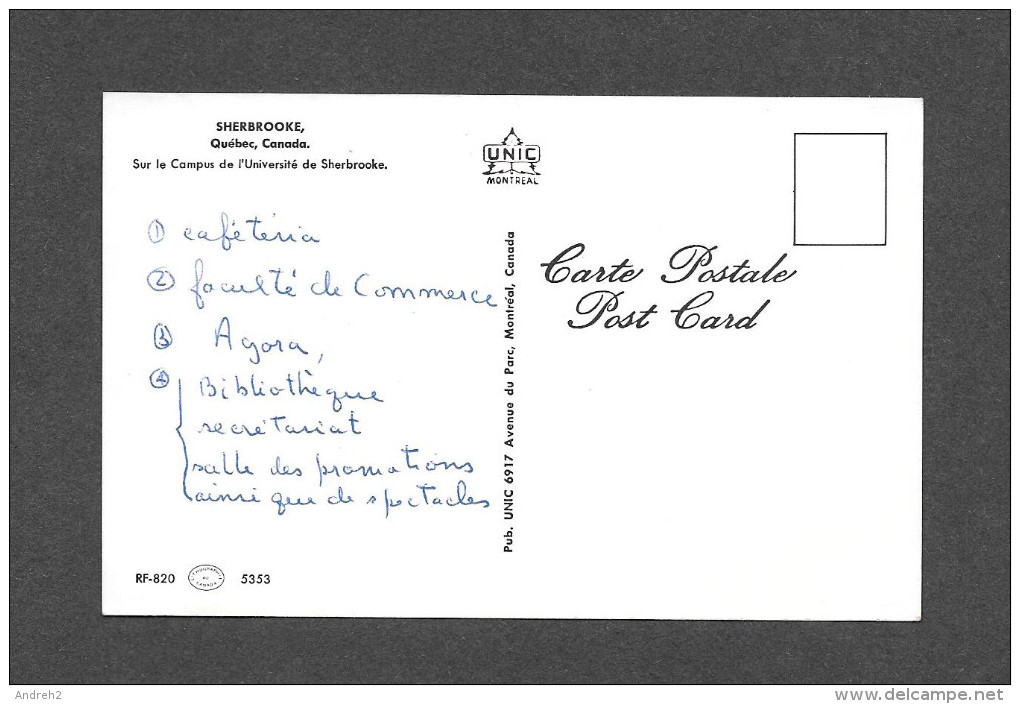 SHERBROOKE,
Québec, Canada.
Sur le Campus de l'Université de Sherbrooke.
① cafétéria
② faculté de Commerce
③ Agora,
④ Bibliothèque
secrétariat
salle des promotions
ainsi que de spectacles
RF-820 LITHOGRAPHIE AU CANADA 5353
UNIC
MONTREAL
Pub. UNIC 6917 Avenue du Parc, Montréal, Canada
Carte Postale
Post Card
Andreh2
www.delcampe.net